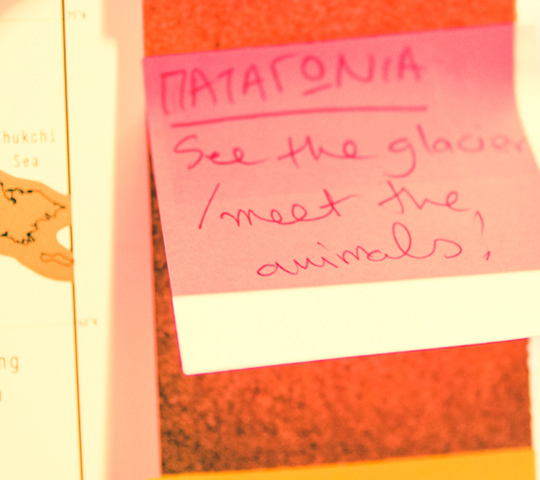 ΠΑΤΑΓΟΝΙΑ
See the glacier
/meet the
animals!
Chukchi
Sea